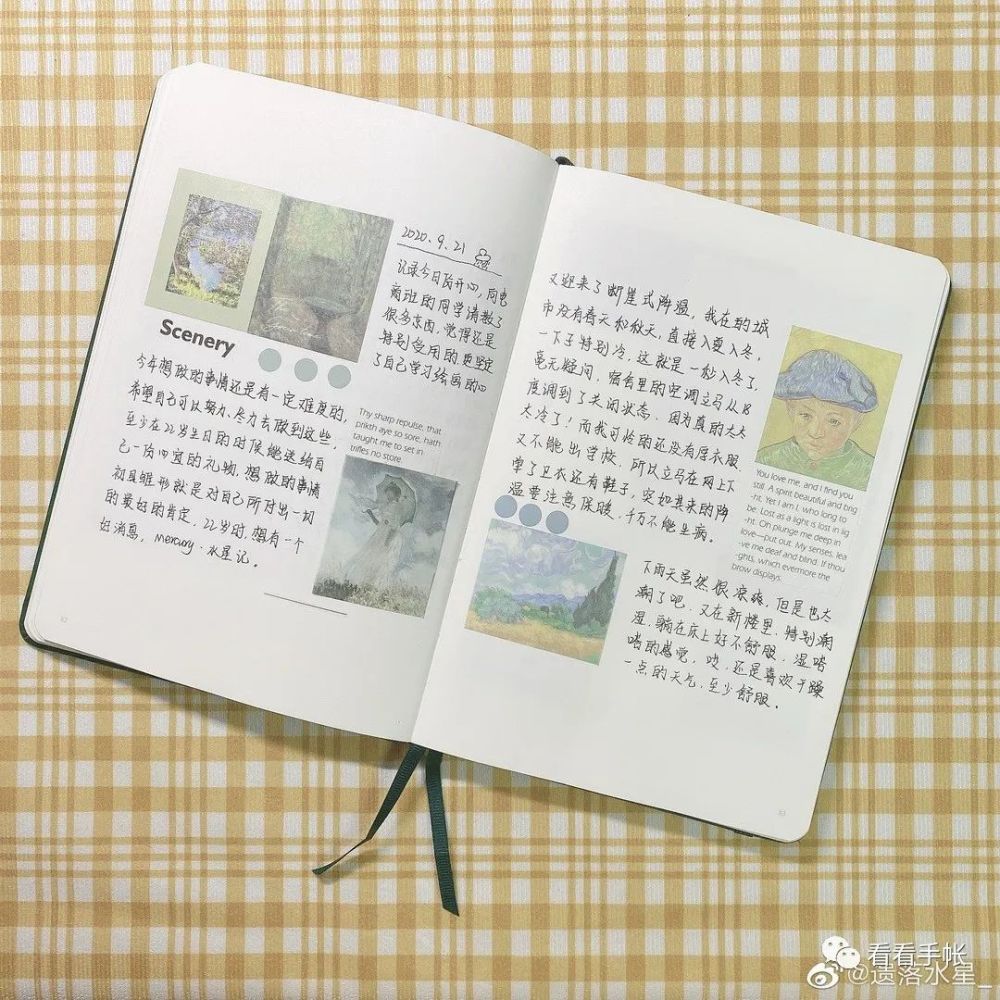 2020.9.21
记录今日份开心，同电
商班的同学请教了
很多东西，觉得还是
特别受用的更坚定
了自己学习绘画的心
Scenery
今年想做的事情还是有一定难度的，
希望自己可以努力、尽力去做到这些，
至少在22岁生日的时候能送给自
己一份四宜的礼物，想做的事情
初具雏形就是对自己所付出一切
的最好的肯定，22岁时，想有一个
好消息，mercury·水星记。
Thy sharp repulse, that
prikth aye so sore, hath
taught me to set in
trifles no store.
62
又迎来了断崖式降温，我在的城
市没有春天和秋天，直接入夏入冬，
一下子特别冷，这就是一秒入冬了，
毫无疑问，宿舍里的空调立马从18
度调到了关闭状态，因为真的太太
太冷了！而我可怜的还没有厚衣服
又不能出学校，所以立马在网上下
单了卫衣还有鞋子，突如其来的降
温要注意保暖，千万不能生病。
You love me, and I find you
still A spirit beautiful and brig
-ht. Yet I am I, who long to
be. Lost as a light is lost in lig
-ht. Oh plunge me deep in
love—put out. My senses, lea
ve me deaf and blind. If thou
ghts, which evermore the
brow displays.
下雨天虽然很凉爽，但是也太
潮了吧，又在新楼里，特别潮
湿，躺在床上好不舒服，湿嗒
嗒的感觉，唉，还是喜欢干燥
一点的天气，至少舒服。
63
看看手帐
@遗落水星_